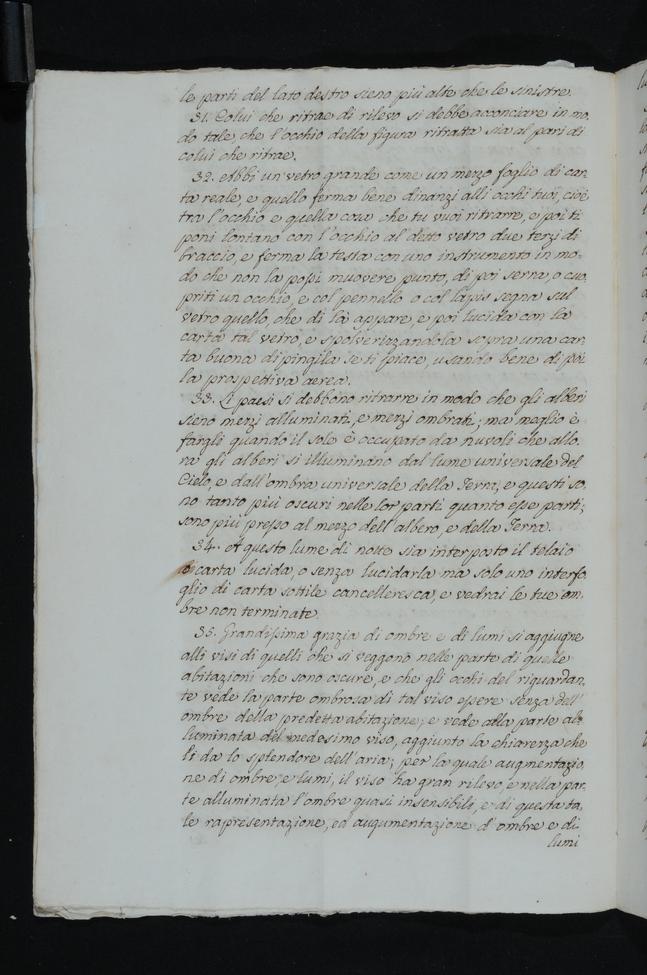 le parti del lato destro sieno più alte che le sinistre.
31. Colui che ritrae di rilevo si debbe acconciare in mo,
do tale, che l'occhio della figura ritratta sia al pari di
colui che ritrae.
32. Abbi un vetro grande come un mezzo foglio di car,
ta reale, e quello ferma bene dinanzi alli occhi tuoi, cioè
tra l'occhio e quella cosa che tu vuoi ritrarre, e poi ti
poni lontano con l'occhio al detto vetro due terzi di
braccio, e ferma la testa con uno instrumento in mo,
do che non la possi muovere punto, di poi serra, o cuo,
priti un occhio, e col pennello o col lapis segna sul
vetro quello, che di là appare, e poi lucida con la
carta tal vetro, e spolverizzandola sopra una car,
ta buona dipingila se ti piace, usando bene di poi
la prospettiva aerea.
33. Li paesi si debbono ritrarre in modo che gli alberi
sieno mezzi alluminati, e mezzi ombrati; ma meglio è
fargli quando il sole è occupato da nuvoli che allo,
ra gli alberi si illuminano dal lume universale del
Cielo, e dall'ombra universale della Terra; e questi so,
no tanto più oscuri nelle lor parti quanto esse parti
sono più presso al mezzo dell'albero, e della Terra.
34. A questo lume di notte sia interposto il telaio
carta lucida, o senza lucidarla ma solo uno interfo,
glio di carta sottile cancelleresca, e vedrai le tue om,
bre non terminate.
35. Grandissima grazia di ombre e di lumi si aggiugne
alli visi di quelli che si veggono nelle parte di quelle
abitazioni che sono oscure, e che gli occhi del riguardan,
te vede la parte ombrosa di tal viso essere senza dall'
ombre della predetta abitazione, e vede alla parte al,
luminata del medesimo viso, aggiunto la chiarezza che
li da lo splendore dell'aria; per la quale augmentazio
ne di ombre, e lumi, il viso ha gran rilevo, e nella par,
te alluminata l'ombre quasi insensibili, e di questa ta,
le rapresentazione, ed augumentazione d'ombre e di
lumi